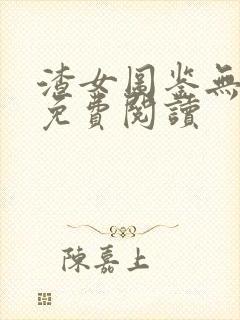 渣女图鉴無
免費閱讀
陳嘉上